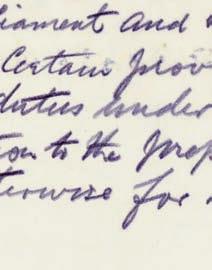 liament and
Certain prov
duties under
tion to the prep
terwise for